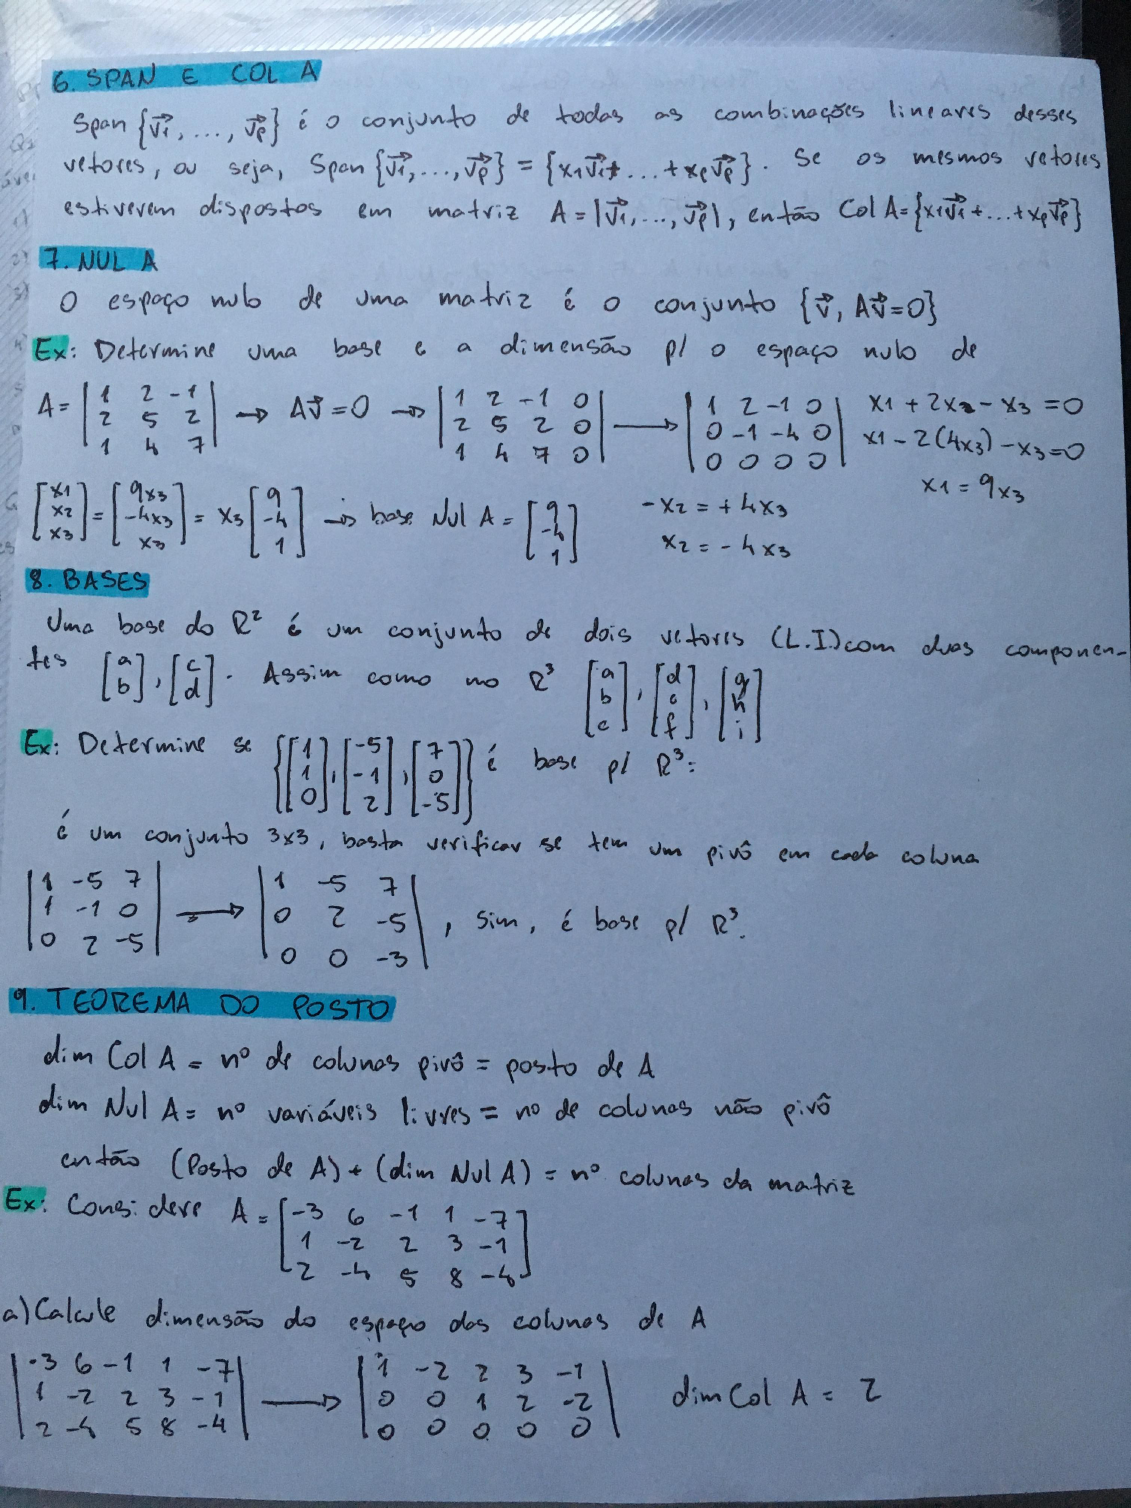 6. SPAN E COL A
Span {v⃗1, ..., v⃗p} é o conjunto de todas as combinações lineares desses
vetores, ou seja, Span {v⃗1, ..., v⃗p} = {x1v⃗1 + ... + xpv⃗p}. Se os mesmos vetores
estiverem dispostos em matriz A = |v⃗1, ..., v⃗p|, então Col A = {x1v⃗1 + ... + xpv⃗p}
7. NUL A
O espaço nulo de uma matriz é o conjunto {v⃗, Av⃗=0}
Ex: Determine uma base e a dimensão p/ o espaço nulo de
A = |1 2 -1; 2 5 2; 1 4 7| → Av⃗ = 0 → |1 2 -1 0; 2 5 2 0; 1 4 7 0| → |1 2 -1 0; 0 -1 -4 0; 0 0 0 0| x1 + 2x2 - x3 = 0
x1 - 2(4x3) - x3 = 0
x1 = 9x3
[x1; x2; x3] = [9x3; -4x3; x3] = x3 [9; -4; 1] → base Nul A = [9; -4; 1] -x2 = +4x3
x2 = -4x3
8. BASES
Uma base do R² é um conjunto de dois vetores (L.I.) com duas componen-
tes [a; b], [c; d]. Assim como no R³ [a; b; c], [d; e; f], [g; h; i]
Ex: Determine se {[1; 1; 0], [-5; -1; 2], [7; 0; -5]} é base p/ R³:
é um conjunto 3x3, basta verificar se tem um pivô em cada coluna
|1 -5 7; 1 -1 0; 0 2 -5| → |1 -5 7; 0 2 -5; 0 0 -3|, sim, é base p/ R³.
9. TEOREMA DO POSTO
dim Col A = nº de colunas pivô = posto de A
dim Nul A = nº variáveis livres = nº de colunas não pivô
então (Posto de A) + (dim Nul A) = nº colunas da matriz
Ex: Considere A = [-3 6 -1 1 -7; 1 -2 2 3 -1; 2 -4 5 8 -4]
a) Calcule dimensão do espaço das colunas de A
|-3 6 -1 1 -7; 1 -2 2 3 -1; 2 -4 5 8 -4| → |1 -2 2 3 -1; 0 0 1 2 -2; 0 0 0 0 0| dim Col A = 2